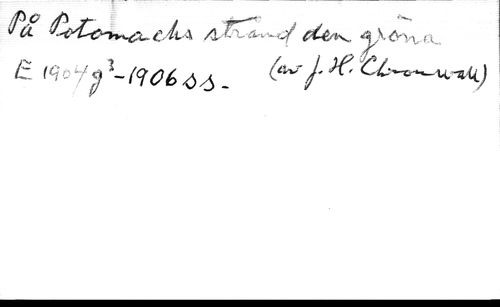 På Potomachs strand den gröna
E 1904 g³-1906 ss.
(av J. H. Chronwall)